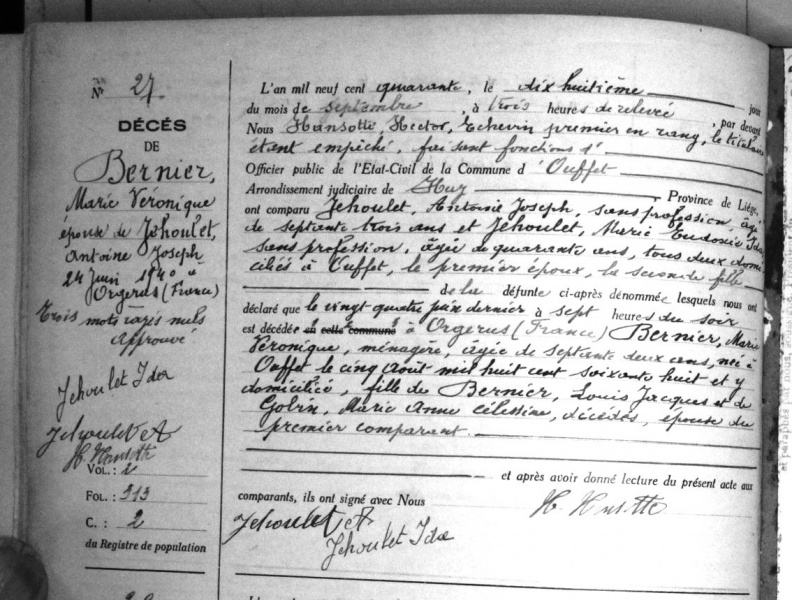 N° 27
DÉCÉS
DE
Bernier,
Marie Véronique
épouse de Jehoulet,
Antoine Joseph
24 juin 1940 à
Orgerus (France)
Trois mots rayés nuls
Approuvé
Jehoulet Ida
Jehoulet A
H. Hansotte
VOL. : 2
FOL. : 313
C. : 2
du Registre de population
L'an mil neuf cent quarante, le dix huitième jour
du mois de septembre, à trois heures de relevée, par devant
Nous Hansotte, Hector, Echevin premier en rang, le titulaire
étant empêché, faisant fonctions d'
Officier public de l'Etat-Civil de la Commune d'Ouffet
Arrondissement judiciaire de Huy Province de Liége,
ont comparu Jehoulet, Antoine Joseph, sans profession, âgé
de septante trois ans et Jehoulet, Marie Eudonie Ida
sans profession, âgée de quarante ans, tous deux domi
ciliés à Ouffet, le premier époux, la seconde fille
de la défunte ci-après dénommée lesquels nous ont
déclaré que le vingt quatre juin dernier à sept heures du soir
est décédée en cette commune à Orgerus (France) Bernier, Marie
Véronique, ménagère, âgée de septante deux ans, née à
Ouffet le cinq août mil huit cent soixante huit et y
domiciliée, fille de Bernier, Louis Jacques et de
Gobin, Marie Anne Célestine, décédés, épouse du
premier comparant.
et après avoir donné lecture du présent acte aux
comparants, ils ont signé avec Nous
H. Hansotte
Jehoulet A
Jehoulet Ida